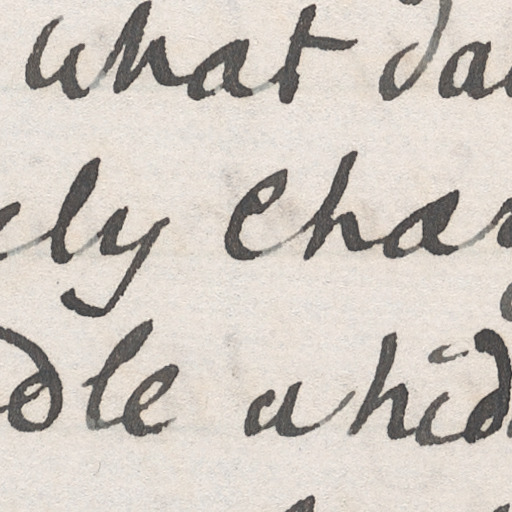 what da
ely char
dle whid